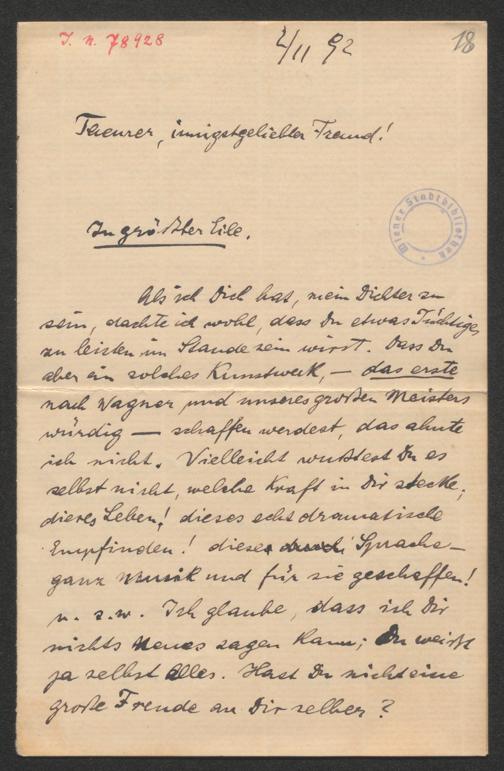 I. N. 78928
2/11 92
18
Teurer, innigstgeliebter Freund!
Wiener Stadtbibliothek
In größter Eile.
Als ich Dich bat, mein Dichter zu
sein, dachte ich wohl, dass Du etwas Tüchtiges
zu leisten im Stande sein wirst. Dass Du
aber ein solches Kunstwerk, — das erste
nach Wagner und unseres großen Meisters
würdig — schaffen werdest, das ahnte
ich nicht. Vielleicht wußtest Du es
selbst nicht, welche Kraft in Dir stecke;
dieses Leben! dieses echt dramatische
Empfinden! diese Sprache —
ganz Musik und für sie geschaffen!
u. s. w. Ich glaube, dass ich Dir
nichts Neues sagen kann; Du weißt
ja selbst Alles. Hast Du nicht eine
große Freude an Dir selber?